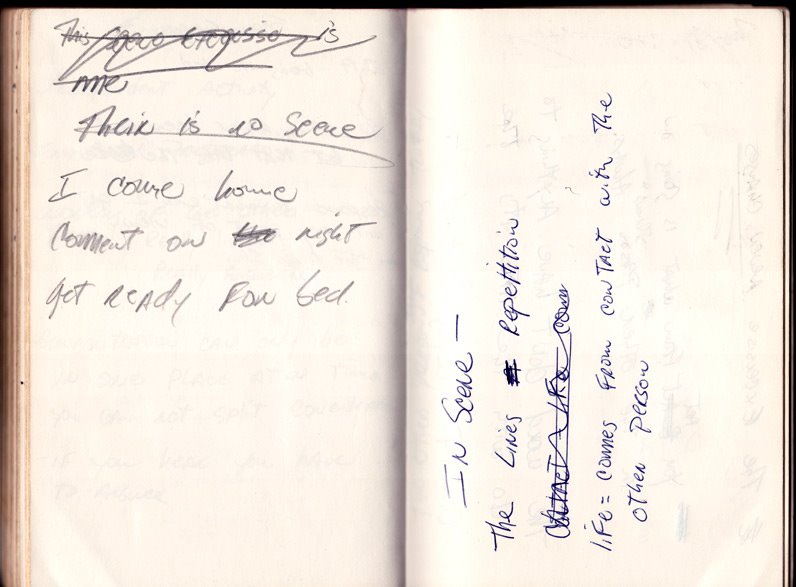 This is
Their is no Scene
I come home
Comment on night
Get Ready For bed.
In Scene —
The Lines Repetition
life = comes from contact with the
other person